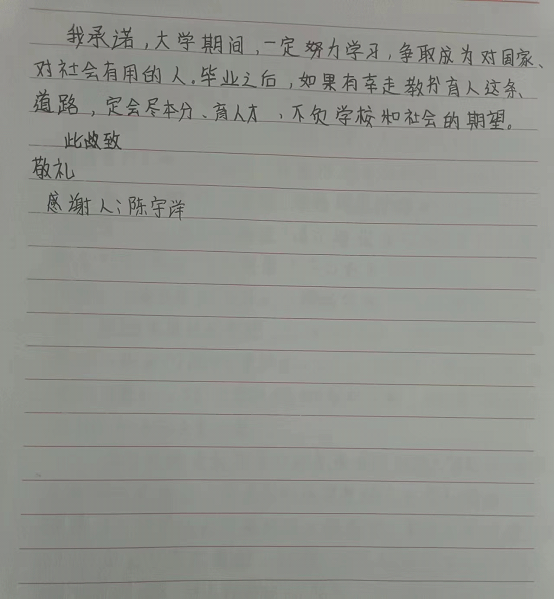 我承诺,大学期间,一定努力学习,争取成为对国家、
对社会有用的人。毕业之后,如果有幸走教书育人这条、
道路,定会尽本分、育人才、不负学校和社会的期望。
此致
敬礼
感谢人:陈宇洋